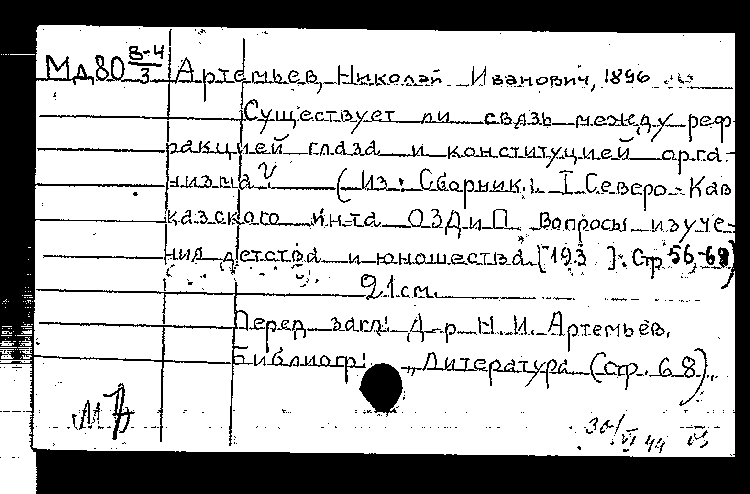 Мд80 В-4/3 Артемьев, Николай Иванович, 1896
Существует ли связь между реф-
ракцией глаза и конституцией орга-
низма? (Из: Сборник: I Северо-Кав
казского ин-та ОЗДиП. Вопросы изуче-
ния детства и юношества. [193 ]. Стр 56-68)
21 см.
Перед загл: Д-р Н. И. Артемьев.
Библиогр: „Литература (стр. 68).
30/VI 44